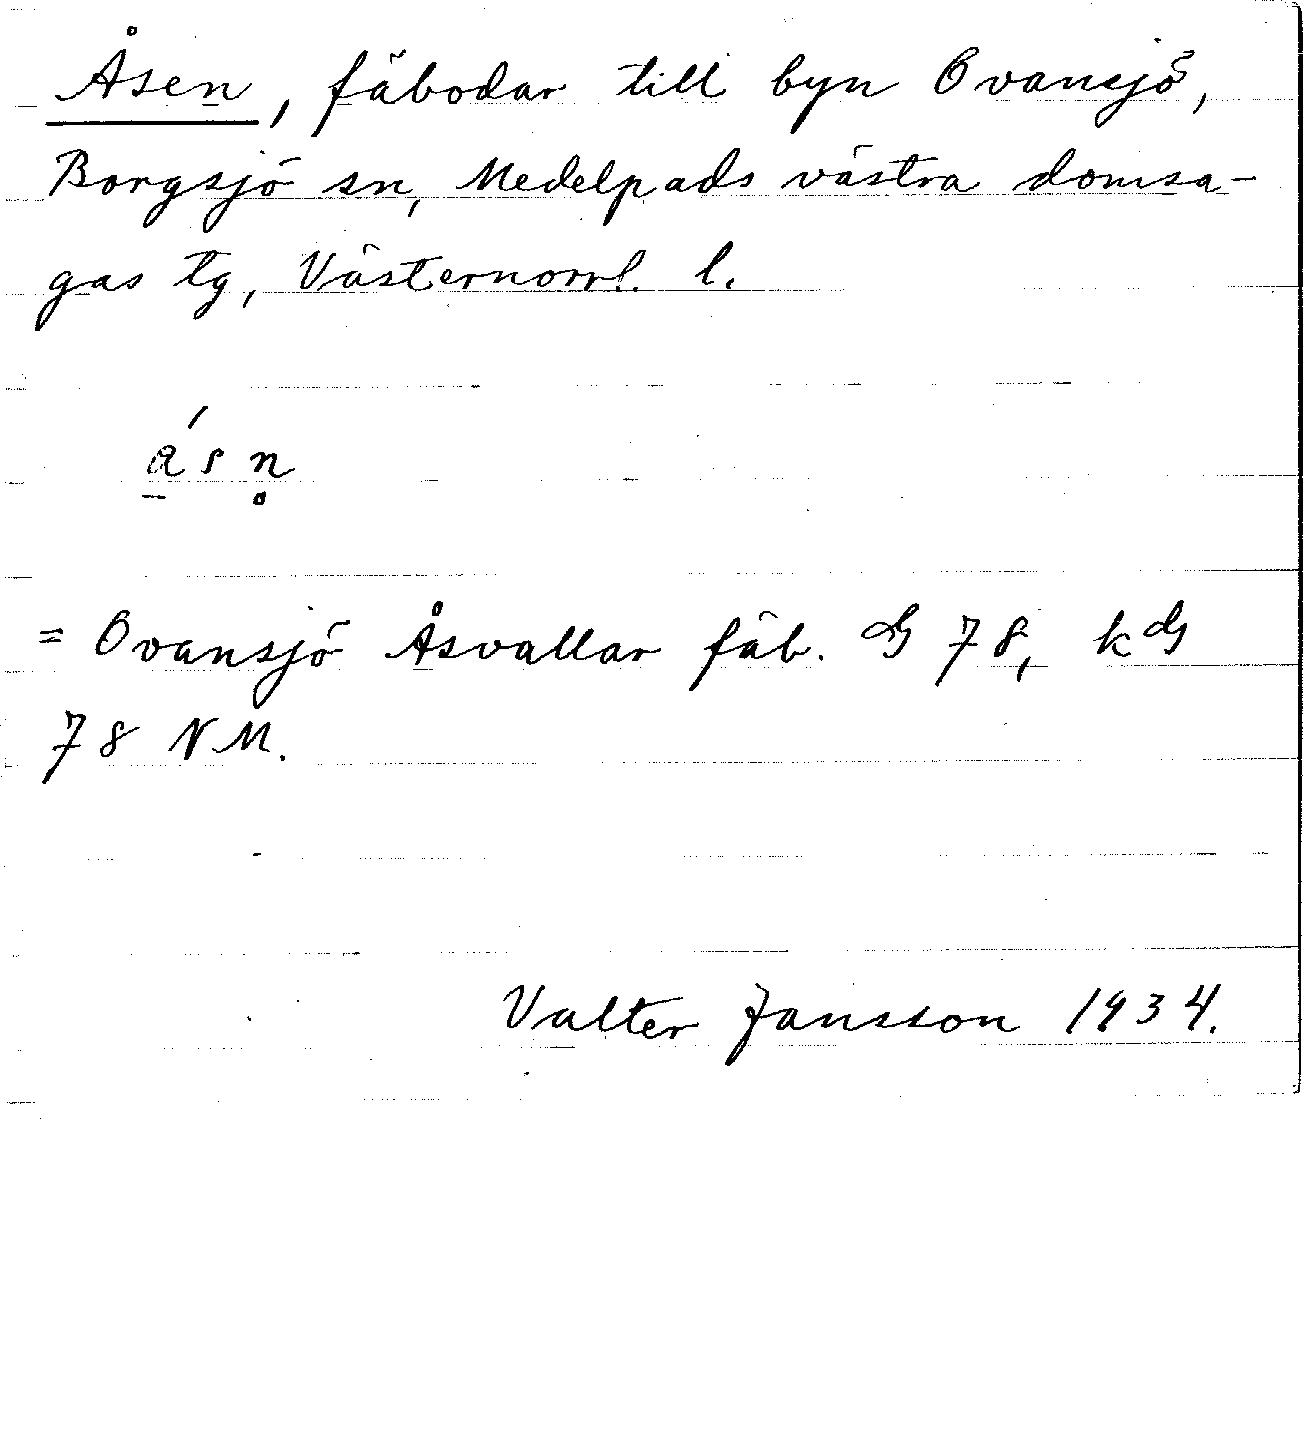 Åsen, fäbodar till byn Ovansjö,
Borgsjö sn, Medelpads västra domsa-
gas tg, Västernorrl. l.
ásn̥
= Ovansjö Åsvallar fäb. G 78, kG
78 NM.
Valter Jansson 1934.